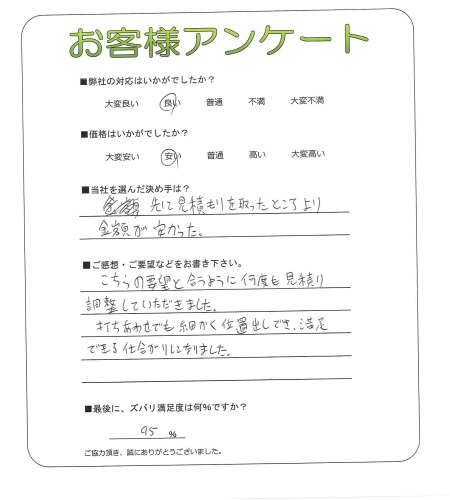 お客様アンケート
■弊社の対応はいかがでしたか？
大変良い 良い 普通 不満 大変不満
■価格はいかがでしたか？
大変安い 安い 普通 高い 大変高い
■当社を選んだ決め手は？
先に見積もりを取ったところより
金額が安かった。
■ご感想・ご要望などをお書き下さい。
こちらの要望と合うように何度も見積り
調整していただきました。
打ちあわせでも細かく位置出しでき、満足
できる仕上がりになりました。
■最後に、ズバリ満足度は何％ですか？
95 ％
ご協力頂き、誠にありがとうございました。